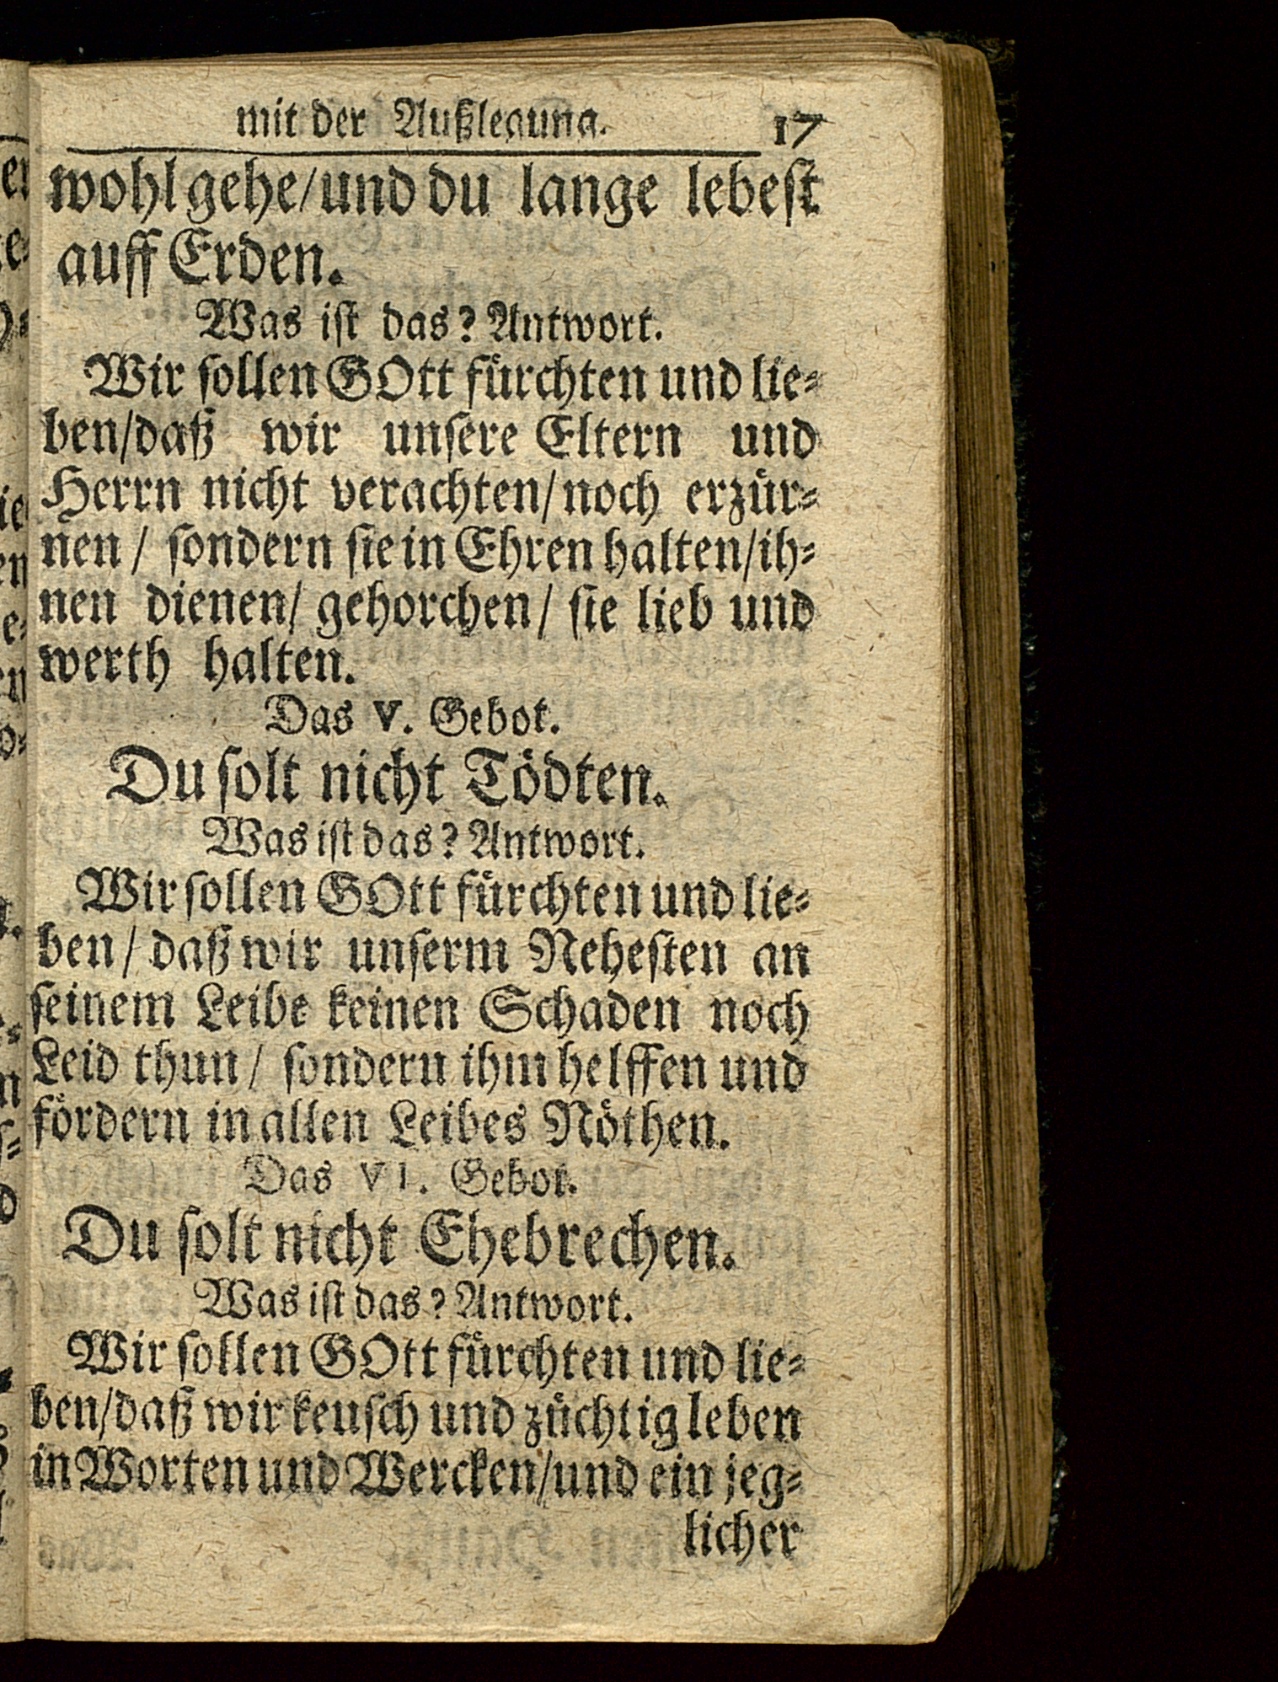 mit der Außlegung. 17
wohl gehe/und du lange lebest
auff Erden.
Was ist das? Antwort.
Wir sollen GOtt fürchten und lie-
ben/daß wir unsere Eltern und
Herrn nicht verachten/noch erzür-
nen / sondern sie in Ehren halten/ih-
nen dienen/ gehorchen/ sie lieb und
werth halten.
Das V. Gebot.
Du solt nicht Tödten.
Was ist das? Antwort.
Wir sollen GOtt fürchten und lie-
ben/ daß wir unserm Nehesten an
seinem Leibe keinen Schaden noch
Leid thun/ sondern ihm helffen und
fördern in allen Leibes Nöthen.
Das VI. Gebot.
Du solt nicht Ehebrechen.
Was ist das? Antwort.
Wir sollen GOtt fürchten und lie-
ben/daß wir keusch und züchtig leben
in Worten und Wercken/und ein jeg-
licher